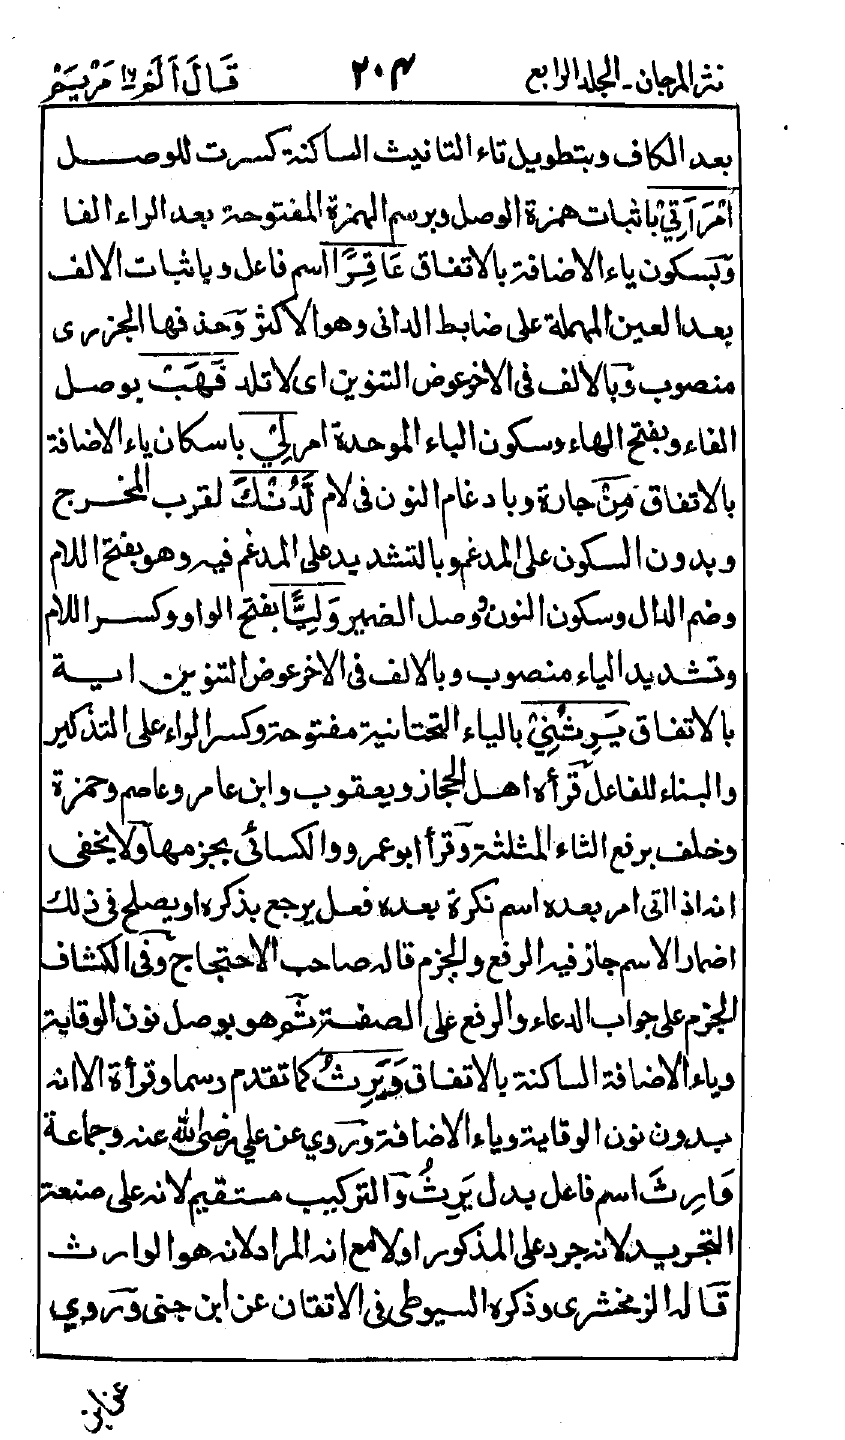 نثر المرجان - المجلد الرابع ٢٠٤ قَالَ اَلَمْ ١٦ مَرْيَمْ
بعد الكاف وبتطويل تاء التانيث الساكنة كسرت للوصل
امْرَاَتِيْ باثبات همزة الوصل وبرسم الهمزة المفتوحة بعد الراء الفا
وبسكون ياء الاضافة بالاتفاق عَاقِرًا اسم فاعل وباثبات الالف
بعد العين المهملة على ضابط الدانى وهو الاكثر وحذفها الجزرى
منصوب وبالالف فى الاخر عوض التنوين اى لا تلد فَهَبْ بوصل
الفاء وبفتح الهاء وسكون الباء الموحدة امر لِيْ باسكان ياء الاضافة
بالاتفاق مِنْ جارة وبادغام النون فى لام لَّدُنْكَ لقرب المخرج
وبدون السكون على المدغم وبالتشديد على المدغم فيه وهو بفتح اللام
وضم الدال وسكون النون وصل الضمير وَلِيًّا بفتح الواو وكسر اللام
وتشديد الياء منصوب وبالالف فى الاخر عوض التنوين اية
بالاتفاق يَرِثُنِيْ بالياء التحتانية مفتوحة وكسر الراء على التذكير
والبناء للفاعل قرأه اهل الحجاز ويعقوب وابن عامر وعاصم وحمزة
وخلف برفع الثاء المثلثة وقرأ ابو عمرو والكسائى بجزمها ولا يخفى
انه اذا اتى امر بعده اسم نكرة بعده فعل يرجع بذكره او يصلح فى ذلك
اضمار الاسم جاز فيه الرفع والجزم قاله صاحب الاحتجاج وفى الكشاف
الجزم على جواب الدعاء والرفع على الصفة ثم هو بوصل نون الوقاية
وياء الاضافة الساكنة بالاتفاق وَيَرِثُ كما تقدم رسما وقرأة الا انه
بدون نون الوقاية وياء الاضافة وروي عن علي رضى الله عنه وجماعة
وَارِثٌ اسم فاعل بدل يَرِثُ والتركيب مستقيم لانه على صنعة
التجريد لانه جرد على المذكور اولا مع انه المراد لانه هو الوارث
قاله الزمخشرى وذكره السيوطى فى الاتقان عن ابن جنى وروي
عن ابن